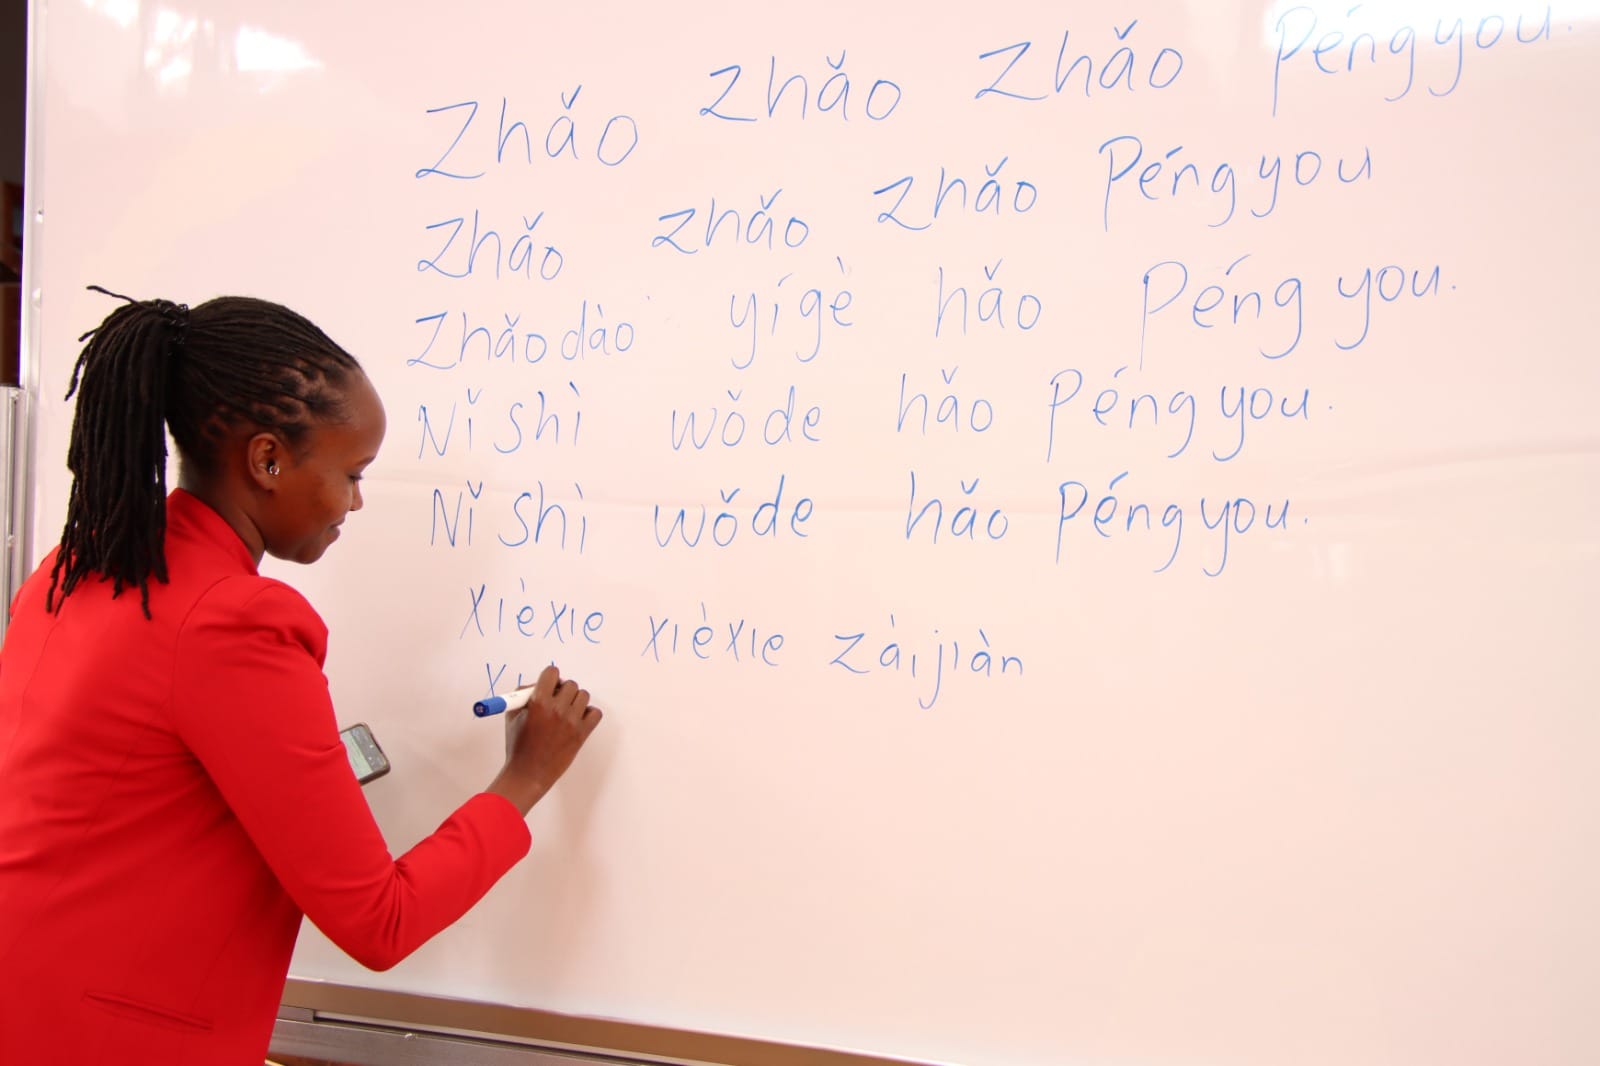 Zhǎo zhǎo zhǎo Péngyou.
Zhǎo zhǎo zhǎo Péngyou
Zhǎodào yígè hǎo Péngyou.
Nǐ shì wǒde hǎo Péngyou.
Nǐ shì wǒde hǎo Péngyou.
xièxie xièxie zàijiàn